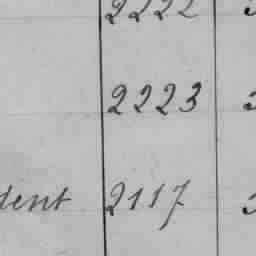 2222
2223
dent 2117